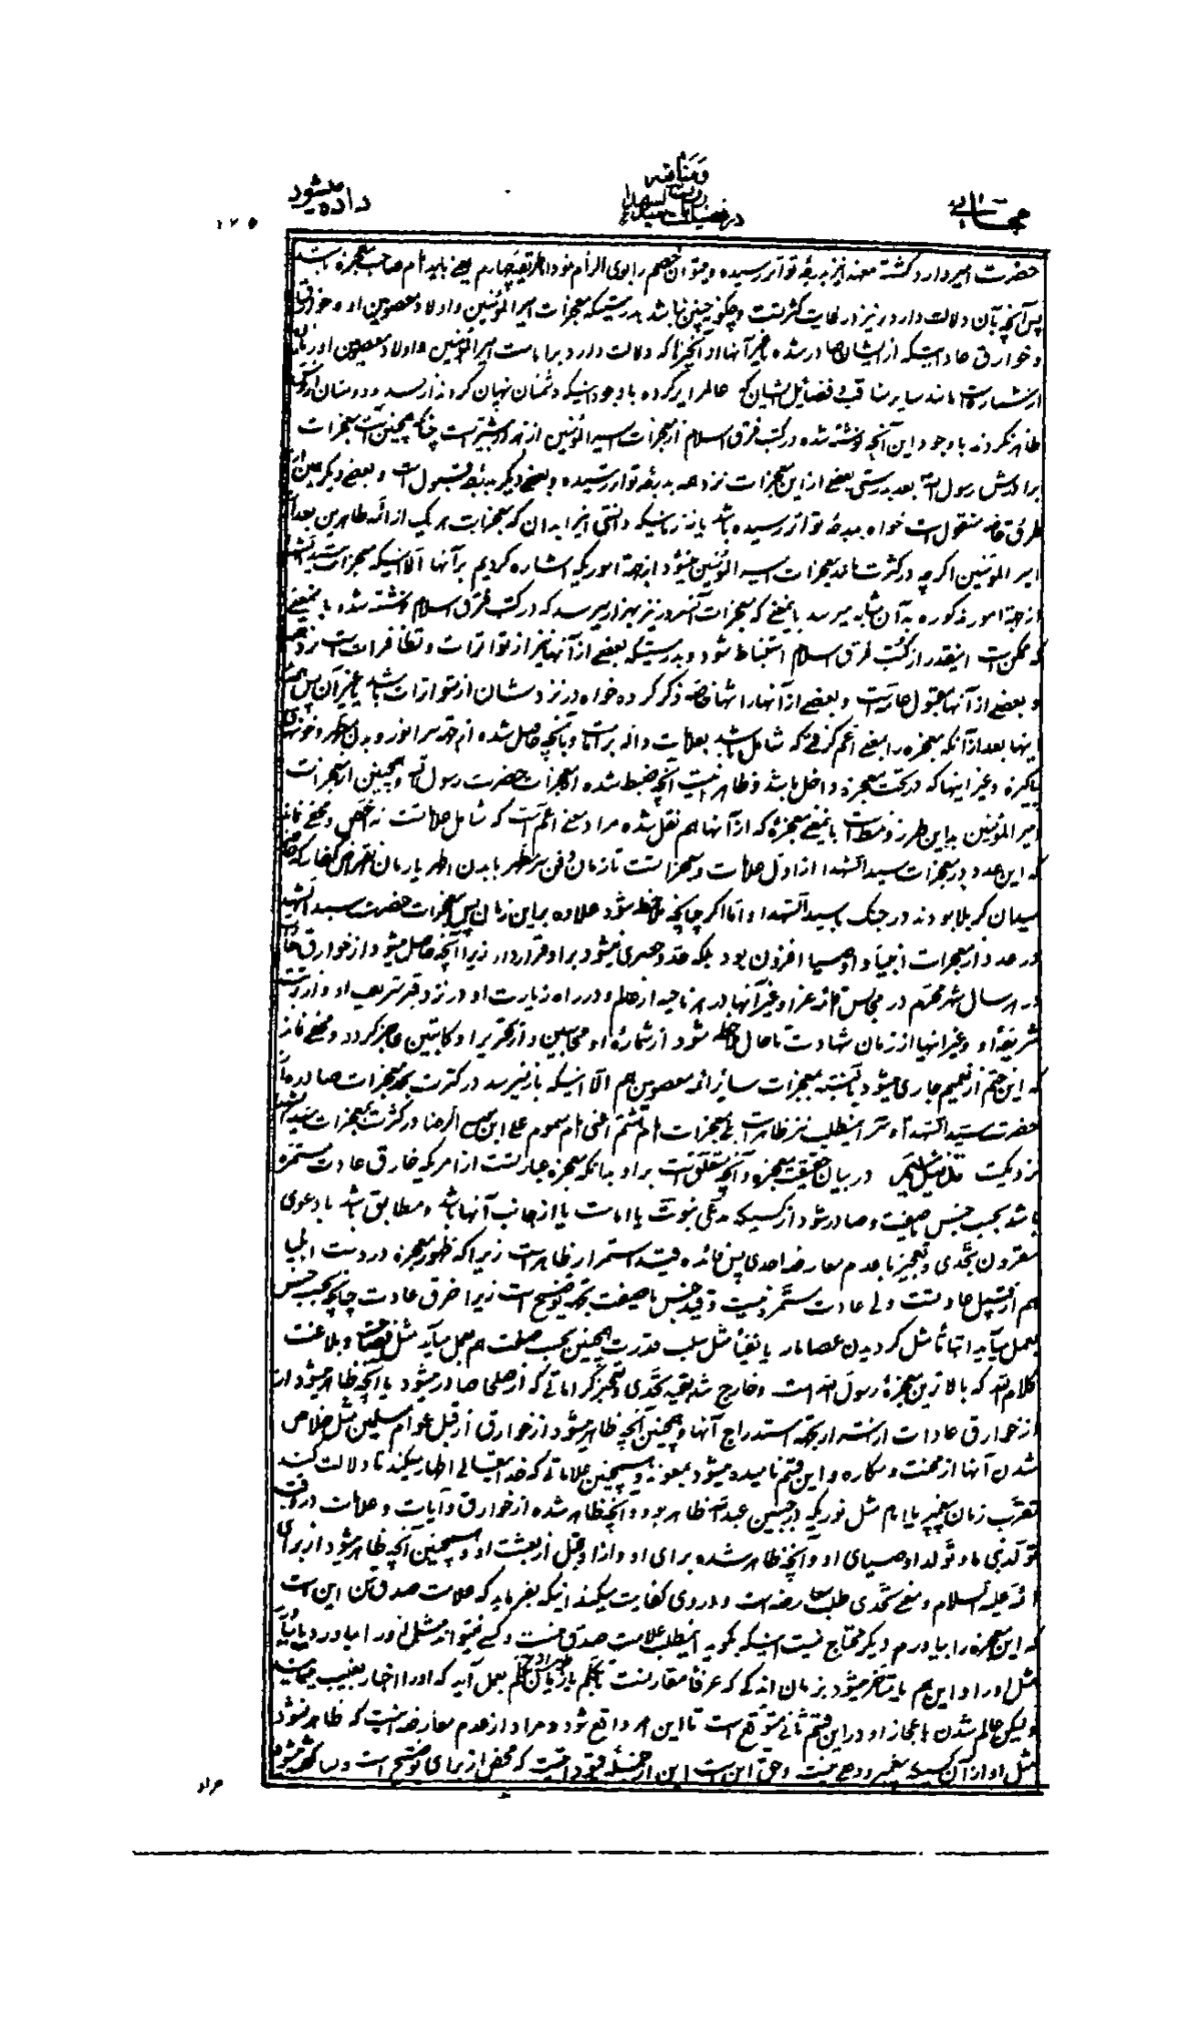 داده میشود
و مناقب
در فضیلت سید الشهداء
۱۲۵
حضرت امیر وارد گشته معنه نیز بدرجه تواتر رسیده و میتوان خصم را بوی الزام نمود اما طریقه چهارم یعنی باید امام صاحب معجزه باشد
پس آنچه بآن دلالت دارد نیز در غایت کثرتست و چگونه چنین نباشد بدرستیکه معجزات امیر المؤمنین و اولاد معصومین او
و خوارق عاداتیکه از ایشان صادر شده غیر آنها از آنچیزها که دلالت دارد بر امامت امیر المؤمنین و اولاد معصومین او
از شماره است مانند سایر مناقب و فضایل ایشان که عالم را پر کرده با وجود اینکه دشمنان پنهان کردند از حسد و دوستان از
ظاهر نکردند با وجود این آنچه نوشته شده در کتب فرق اسلام از معجزات امیر المؤمنین از هزار بیشتر است چنانکه همچنین است معجزات
برادرش رسول الله بعد بدرستی بعضی از این معجزات نزد همه بدرجه تواتر رسیده و بعضی دیگر بدرجه قبول است و بعضی دیگر
طرق خاصه منقول است خواه بدرجه تواتر رسیده باشد یا نه زمانیکه دانستی اینرا بدان که معجزات هر یک از ائمه طاهرین بعد از
امیر المؤمنین اگر چه در کثرت مانند معجزات امیر المؤمنین نمیشود از جهة اموریکه اشاره کردیم بر آنها الا اینکه معجزات سید الشهدا
از جهة امور مذکوره به آن مشابه میرسد بمعنی که معجزات آنسرور نیز بهزار میرسد که در کتب فرق اسلام نوشته شده یا بمعنی
که ممکن است اینقدر از کتب فرق اسلام استنباط شود و بدرستیکه بعضی از آنها نیز از تواترات و تظافرات است نزد همه
و بعضی از آنها مقبول عامه است و بعضی از آنها را خاصه ذکر کرده خواه در نزدشان از متواترات باشد یا غیر آن پس همه
اینها بعد از آنکه معجزه را بمعنی اعم گرفتی که شامل باشد بعلامات داله بر امامت و بآنچه حاصل شده از جهة سر انور و بدن مطهر و خون
پاکیزه و غیر اینها که در تحت معجزه داخل باشد و ظاهر اینست آنچه ضبط شده از معجزات حضرت رسول الله و همچنین از معجزات
امیر المؤمنین به این طرز و نمط است یا بمعنی معجزه که از آنها هم نقل شده مراد معنی اعم است که شامل علاماتست نه اخص و مخفی نماند
که این عدد در معجزات سید الشهدا از اول علامات و معجزاتست تا زمان دفن سر مطهر با بدن اطهر یا زمان انقراض کفاریکه
میدان کربلا بودند در جنگ با سید الشهدا و اما اگر چنانچه ملاحظه شود علاوه بر این زمان پس معجزات حضرت سید الشهدا
در عدد از معجزات انبیاء و اوصیا افزون بود بلکه عد و حصری نمیشود بر او قرار داد زیرا آنچه حاصل میشود از خوارق عادات
در هر سال شهر محرم در مجالس ماتم و عزا و غیر آنها در هر ناحیه از عالم و در راه زیارت او در نزد قبر شریف او و از تربت
شریفه او و غیر اینها از زمان شهادت تا حال ملاحظه شود از شماره او محاسبین و از تحریر او کاتبین عاجز گردد و مخفی نماند
که این حکم از تعمیم جاری میشود نسبت بمعجزات سایر ائمه معصومین هم الا اینکه باز نمیرسد در کثرت بحد معجزات صادره از
حضرت سید الشهدا و سر اینمطلب نیز ظاهر است بلی معجزات امام هشتم اعنی امام مسموم علی ابن موسی الرضا در کثرت بمعجزات سید الشهدا
نزدیکست تذییل در بیان حقیقت معجزه و آنچه متعلق است بر او بدانکه معجزه عبارتست از امریکه خارق عادت مستمره
باشد بحسب جنس یا صفت و صادر شود از کسیکه مدعی نبوت یا امامت یا از جانب آنها باشد و مطابق باشد با دعوی
مقرون بتحدی و تعجیز با عدم معارضه احدی پس فائده قید استمرار ظاهر است زیرا که ظهور معجزه در دست اهلش
هم از قبیل عادتست ولی عادت مستمره نیست و قید جنس یا صفت بجهة توضیح است زیرا خرق عادت چنانچه بحسب جنس
بعمل میآید اثباتا مثل گردیدن عصا مار یا نفیا مثل سلب قدرت همچنین بحسب صفت هم بعمل میآید مثل فصاحت و بلاغت
کلام الله که بالاترین معجزه رسول الله است و خارج شد بقید تحدی و تعجیز کراماتی که از صلحا صادر میشود یا آنچه ظاهر میشود از
از خوارق عادات از بجهة استدراج آنها و همچنین آنچه ظاهر میشود از خوارق از قبل عوام مسلمین مثل خلاص
شدن آنها از محنت و مکاره و این قسم نامیده میشود بمعونه و همچنین علاماتی که خدا تعالی اظهار میکند تا دلالت کند
بقرب زمان پیغمبر یا امام مثل نوریکه در جبین عبد الله ظاهر بود و آنچه ظاهر شده از خوارق و آیات و علامات در وقت
تولد نبی ما و تولد اوصیای او و آنچه ظاهر شده برای او و از او قبل از بعثت او و همچنین آنچه ظاهر میشود از برای
ائمه علیه السلام و معنی تحدی طلب معارضه است و در وی کفایت میکند اینکه بفرماید که علامت صدق من این است
که این معجزه را بیاورم و دیگر محتاج نیست اینکه بگوید اینمطلب علامت صدق منست و کسی نمیتواند مثل او را بیاورد
مثل او را و این هم یا متأخر میشود بزمان اندکی که عرفا مقارنست بعمل آید که او را اخبار بغیب مینامند
ولیکن عالم شدن باعجاز او در این قسم ثانی متوقع است تا این امر واقع شود و مراد از عدم معارضه اینست که ظاهر نشود
مثل او از آن کسیکه پیغمبر و وصی نیست و حق این است این از جمله قیود نیست که محض از برای توضیح است
مراد